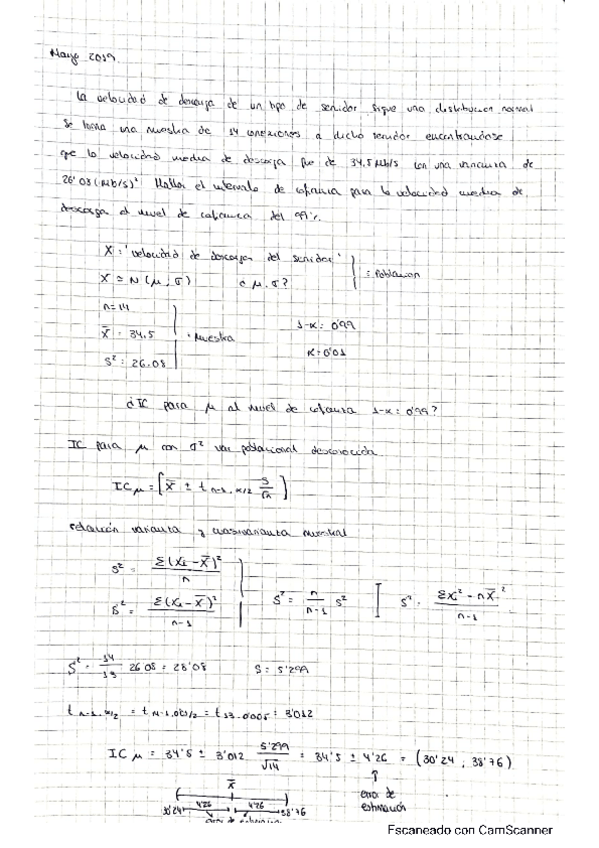 Mayo 2019
La velocidad de descarga de un tipo de servidor sigue una distribución normal
Se toma una muestra de 14 conexiones a dicho servidor encontrandose
que la velocidad media de descarga fue de 34,5 Mb/s con una varianza de
26'08 (Mb/s)² Hallar el intervalo de confianza para la velocidad media de
descarga al nivel de confianza del 99%.
X = 'velocidad de descarga del servidor'
X ≈ N(μ, σ) ¿ μ, σ? : Población
n = 14
x̄ = 34.5 : Muestra 1-α = 0'99
s² = 26.08 α = 0'01
¿IC para μ al nivel de confianza 1-α = 0'99?
IC para μ con σ² var poblacional desconocida
IC μ = [x̄ ± t n-1, α/2 S/√n]
relación varianza y cuasivarianza muestral
s² = Σ(xi - x̄)²/n
S² = Σ(xi - x̄)²/n-1 S² = n/n-1 s² S² = Σxi² - nx̄²/n-1
S² = 14/13 26'08 = 28'08 S = 5'299
t n-1, α/2 = t 14-1, 0.01/2 = t 13, 0.005 = 3'012
IC μ = 34'5 ± 3'012 5'299/√14 = 34'5 ± 4'26 = (30'24, 38'76)
error de
estimación
x̄
30'24 4'26 4'26 38'76
error de estimación
Escaneado con CamScanner